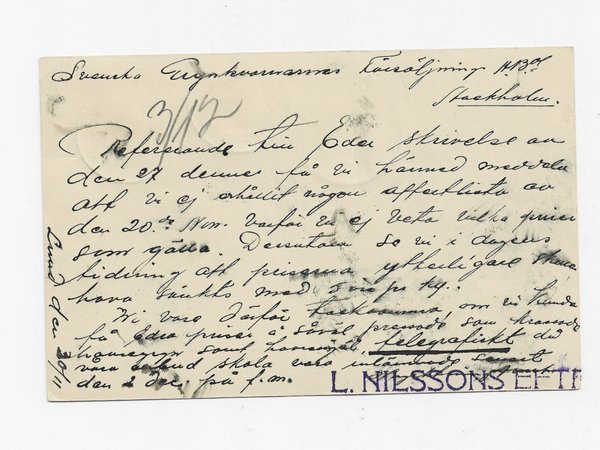 Svenska Grynkvarnarnes Försäljning A.B.
Stockholm.
3/12
Refererande till Eder skrivelse av
den 27 dennes få vi härmed meddela
att vi ej erhållit någon offertlista av
den 20de Nov. varför vi ej veta vilka priser
som gälla. Dessutom se vi i dagens
tidning att priserna ytterligare skola
hava sänkts med 3 öre pr kg.
Vi vore därför tacksamma, om vi kunde
få Edra priser å såväl som krossade
samt telegrafiskt då
våra skola vara senast
den 2 dec. på f.m.
Lund den 30/11
L. NILSSONS EFTR